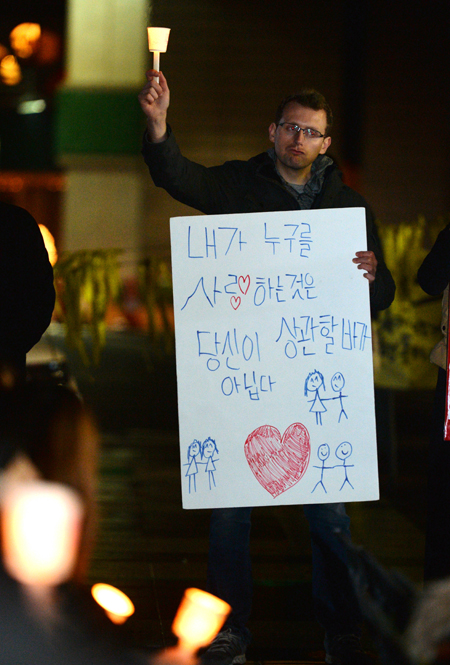 내가 누구를
사랑하는것은
당신이 상관할 바가
아닙니다